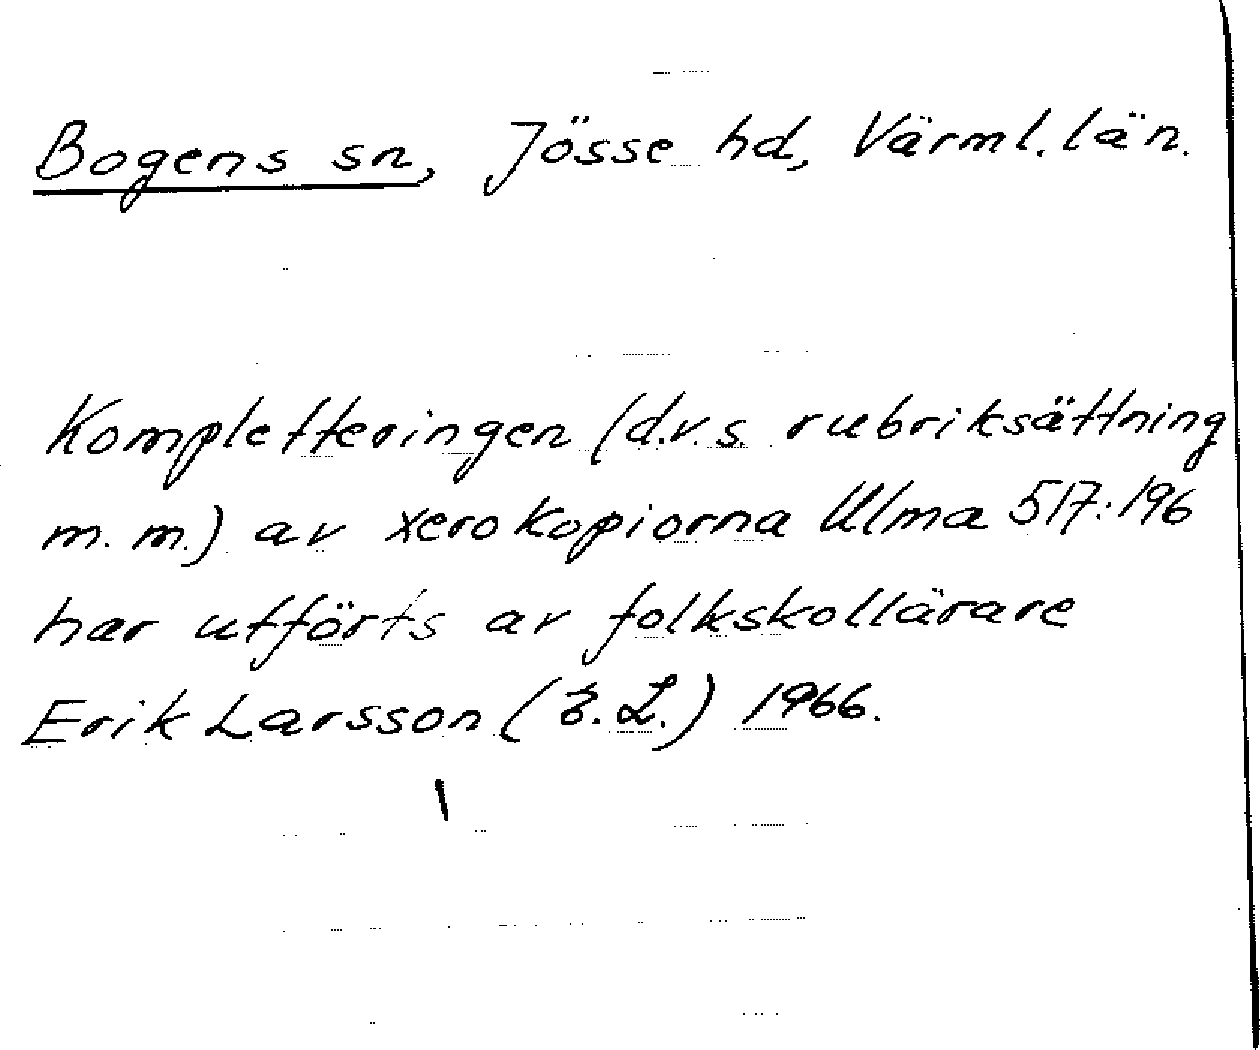 Bogens sn, Jösse hd, Värml. län.
Kompletteringen (d.v.s. rubriksättning
m.m.) av xerokopiorna Ulma 517:196
har utförts av folkskollärare
Erik Larsson (E.L.) 1966.